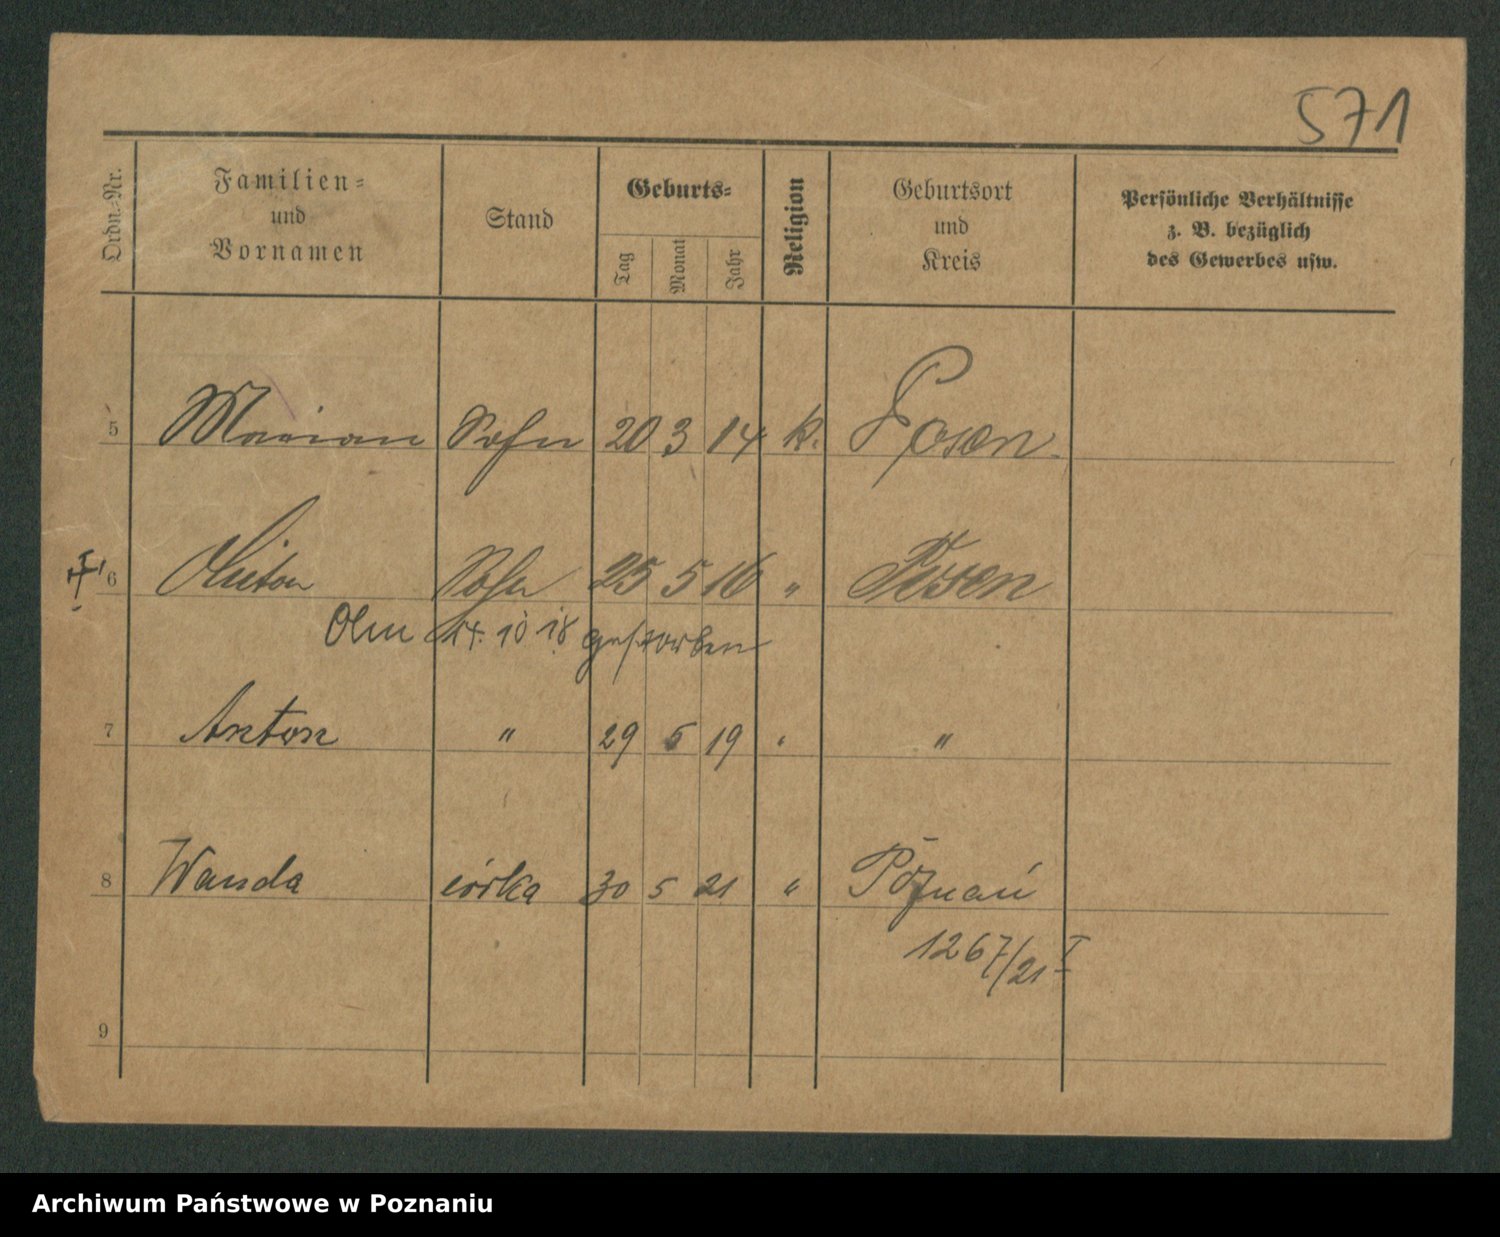 571
Ordn.-Nr.
Familien-
und
Vornamen
Stand
Geburts-
Tag
Monat
Jahr
Religion
Geburtsort
und
Kreis
Persönliche Verhältnisse
z. B. bezüglich
des Gewerbes usw.
5 Marian Sohn 20 3 14 k. Posen
6 Sohn 25 5 16 " Posen
10 18 gestorben
7 Anton " 29 5 19 " "
8 Wanda córka 30 5 21 " Poznań
1267/21 I
9
Archiwum Państwowe w Poznaniu